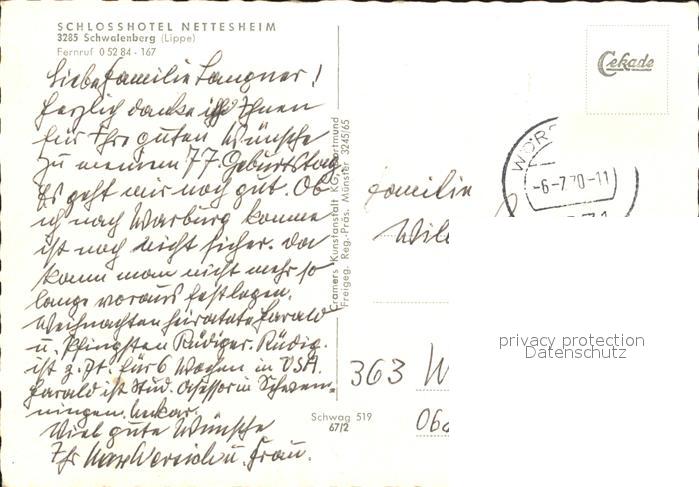 SCHLOSSHOTEL NETTESHEIM
3285 Schwalenberg (Lippe)
Fernruf 0 52 84 - 167
Liebe Familie Langner!
Herzlich danke ich Ihnen
für Ihre guten Wünsche
zu meinem 77. Geburtstag.
Es geht mir noch gut. Ob
ich nach Warburg komme
ist noch nicht sicher. Da
kann man nicht mehr so
lange voraus festlegen.
Weihnachten heiratete Harald
u. Pfingsten Rüdiger. Rüdig.
ist z. Zt. für 6 Wochen in USA.
Harald ist Stud. Assessor in Schwen-
ningen. Neckar.
Viel gute Wünsche
Ihr u. Frau.
Cramers Kunstanstalt KG, Dortmund
Freigeg. Reg.-Präs. Münster 3245/65
Schwag 519
67/2
Cekade
-6-7.70-11
Familie
363 W
privacy protection
Datenschutz